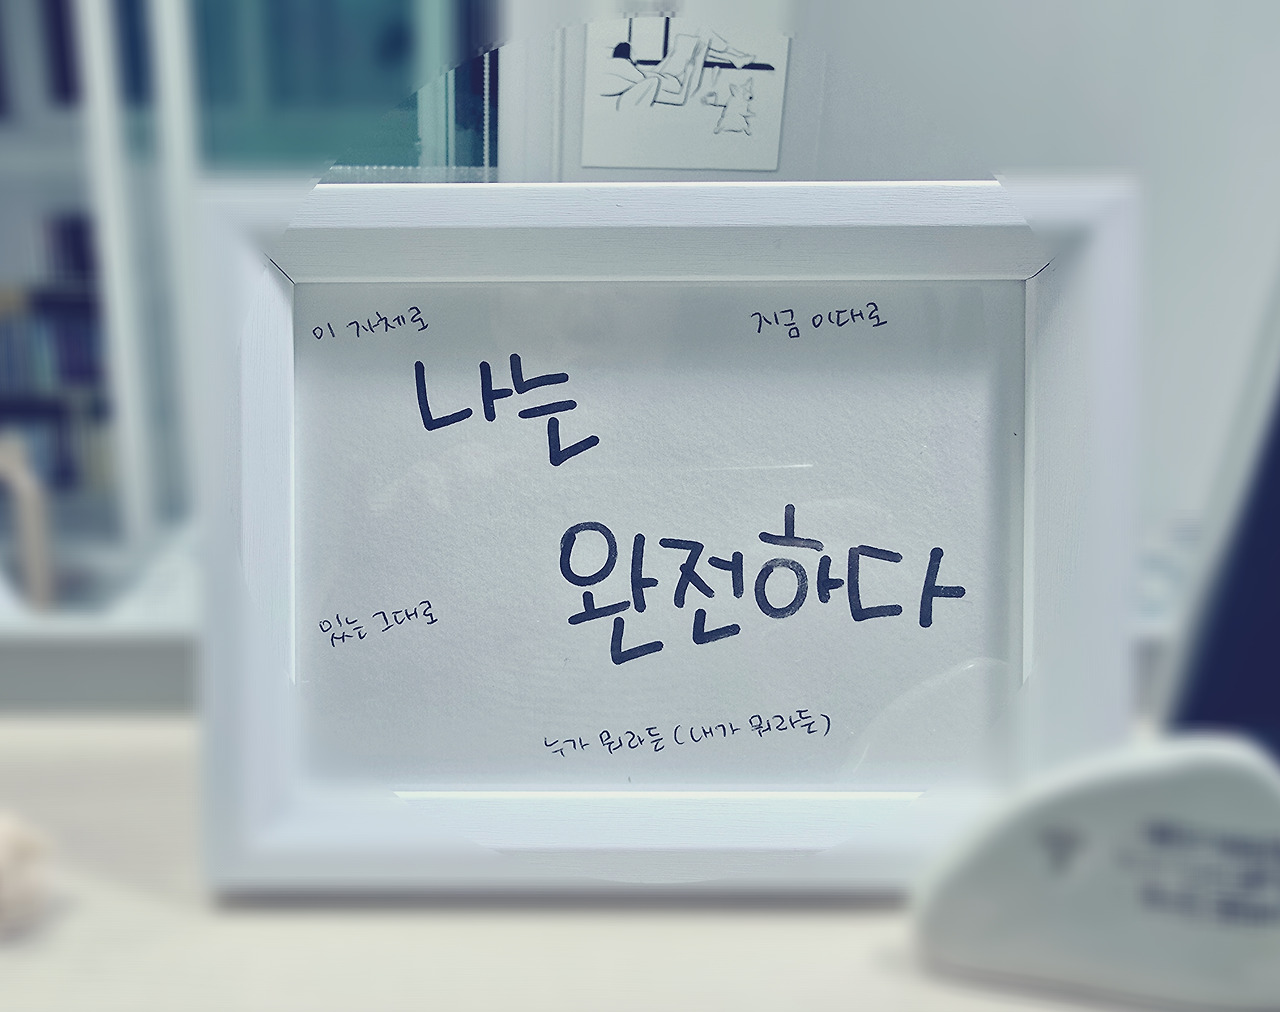 이 자체로
지금 이대로
나는
완전하다
있는 그대로
누가 뭐라든 (내가 뭐라든)